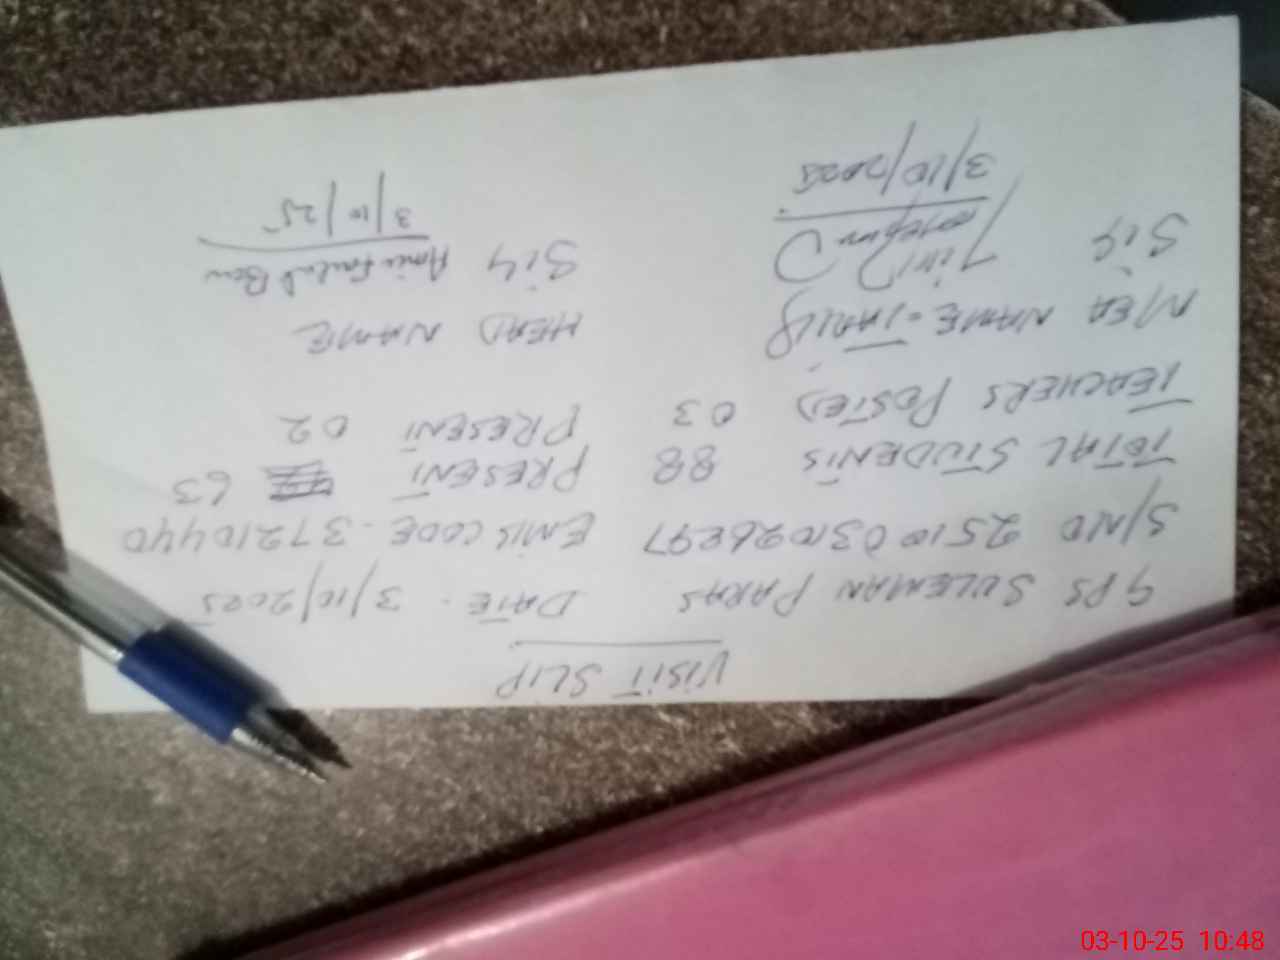 VISIT SLIP
GPS SULEMAN PARAS DATE. 3/10/2025
S/NO 25100310 EMIS CODE. 37210440
TOTAL STUDENTS 88 PRESENT 63
TEACHERS POSTED 03 PRESENT 02
MEA NAME = TARIQ HEAD NAME
Sig Sig
3/10/2025 3/10/25
03-10-25 10:48